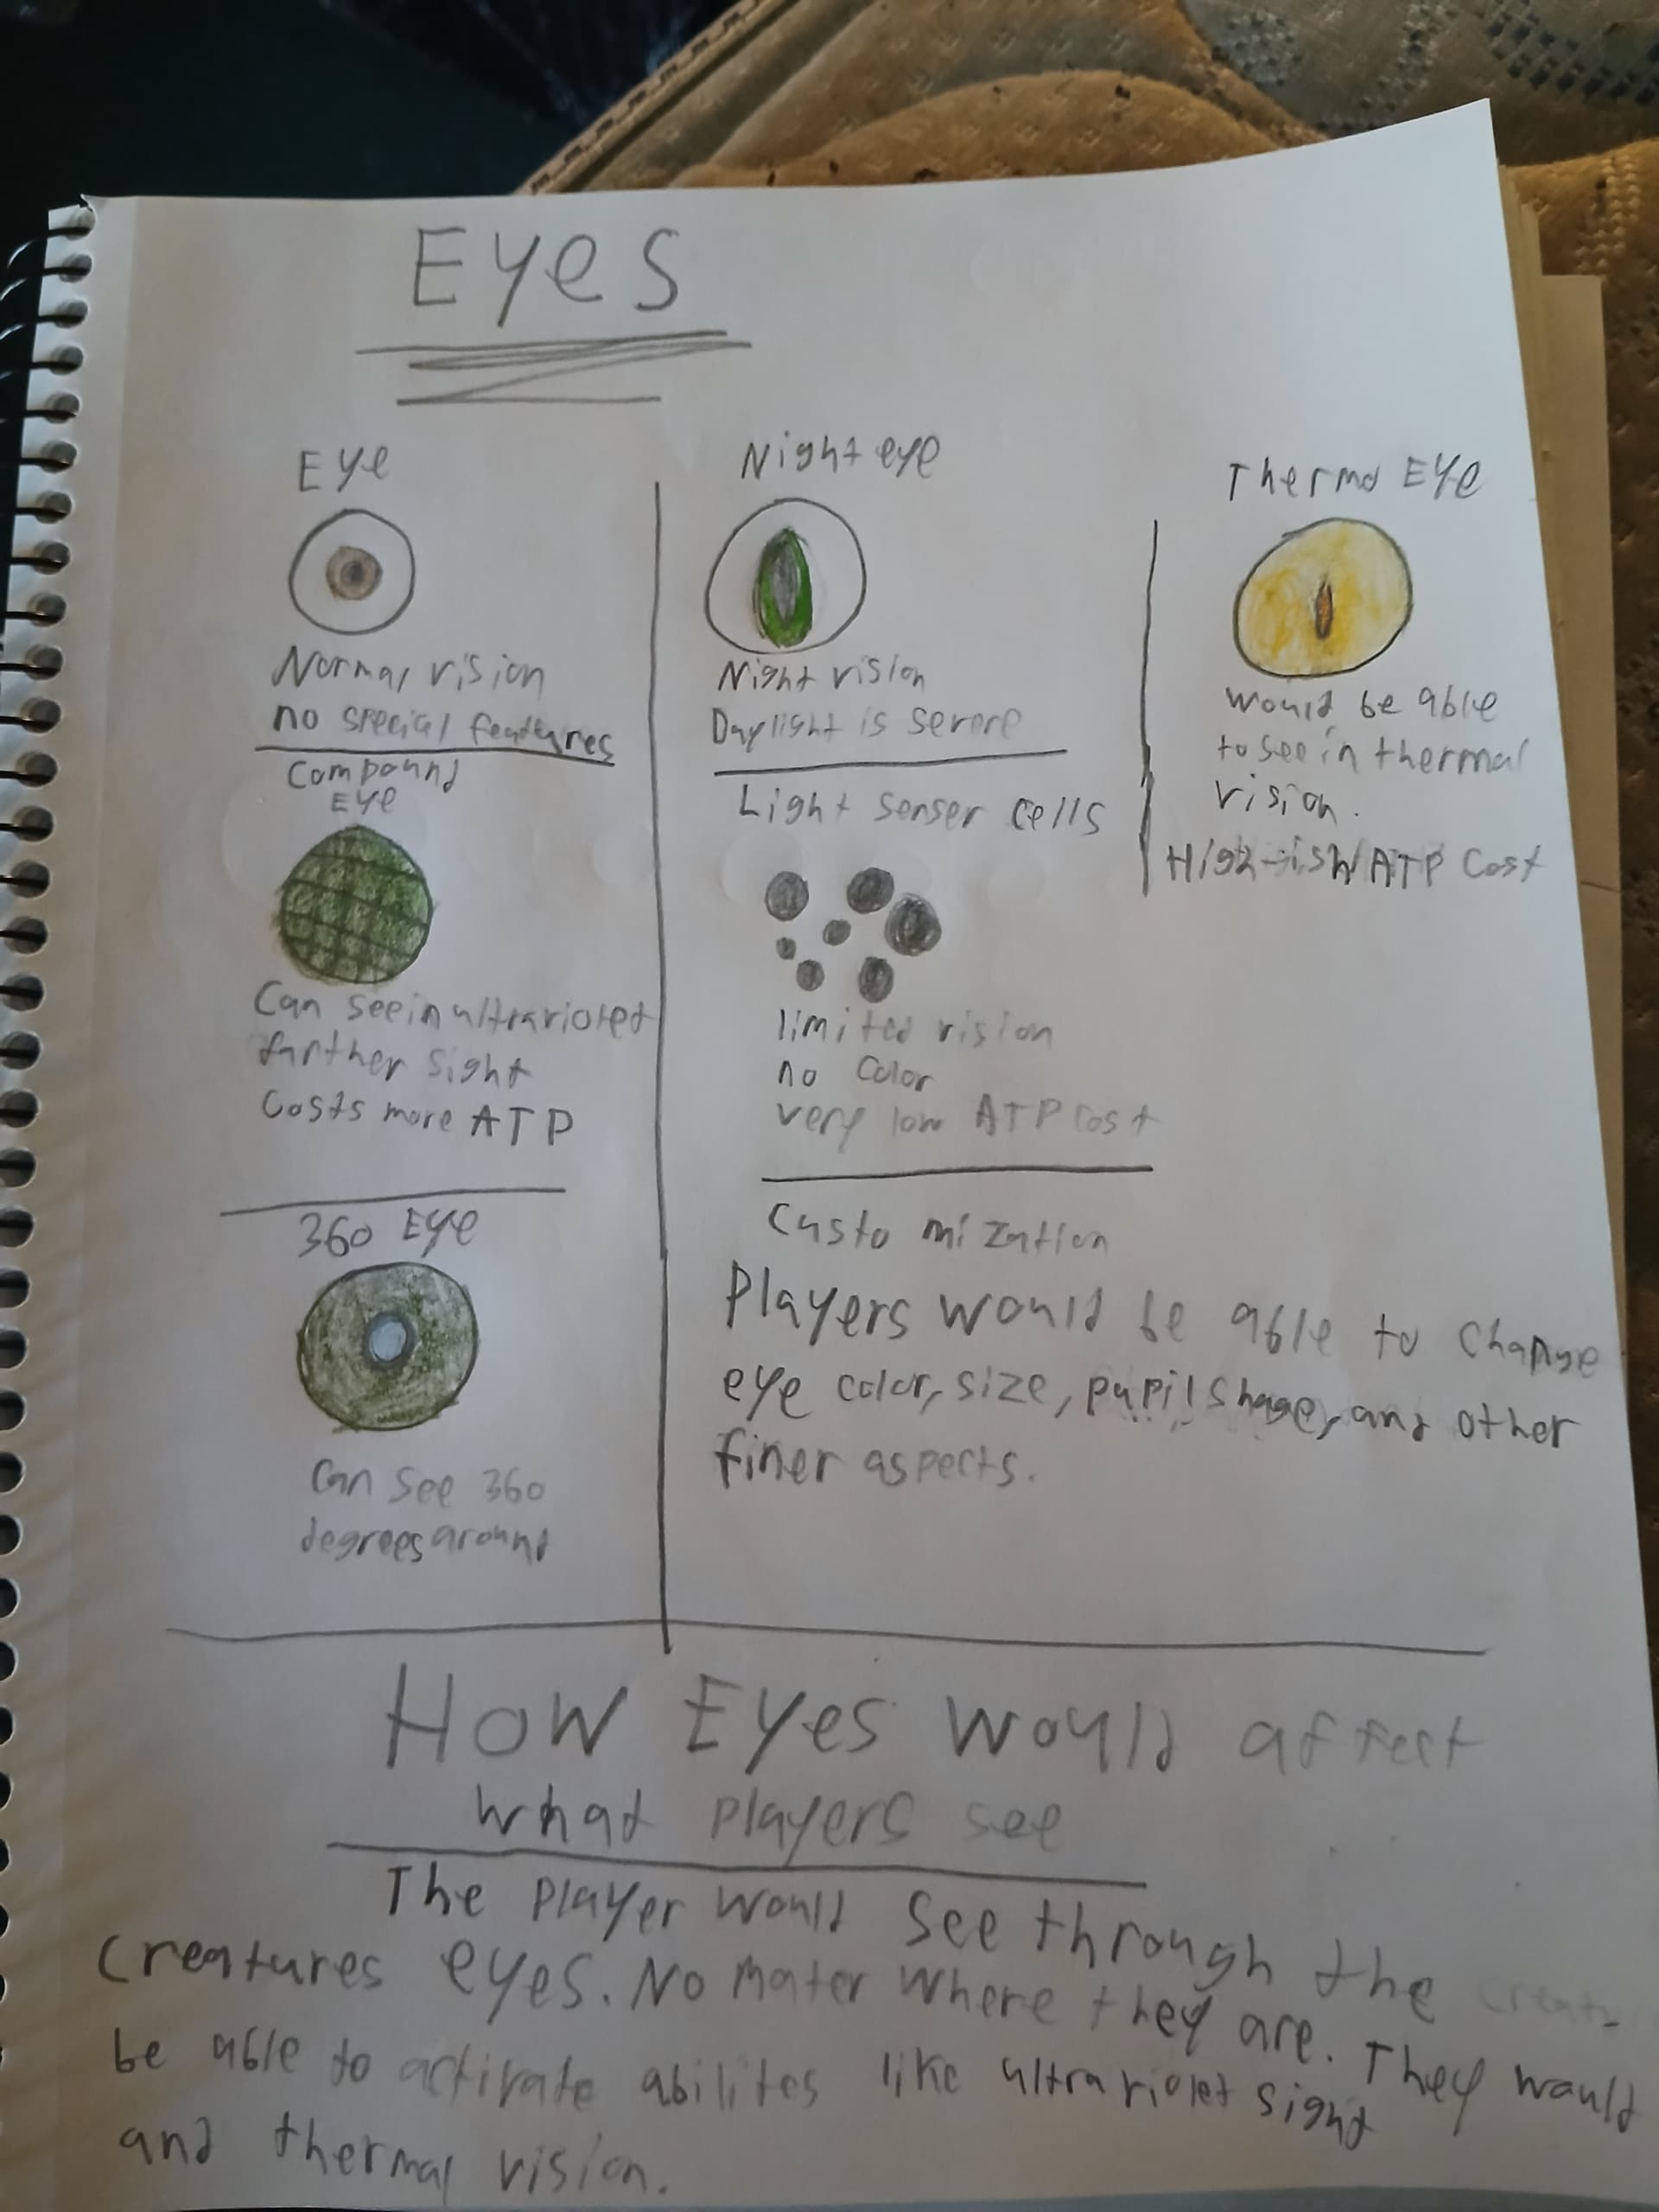 Eyes
Eye
Normal vision
no special features
Compound
Eye
Can see in ultraviolet
farther sight
Costs more ATP
360 Eye
Can see 360
degrees around
Night eye
Night vision
Daylight is severe
Light senser cells
limited vision
no color
very low ATP cost
Customization
Players would be able to change
eye color, size, pupil shape, and other
finer aspects.
Thermo Eye
would be able
to see in thermal
vision.
High-ish ATP cost
How Eyes would affect
what players see
The player would see through the
creatures eyes. No mater where they are. They would
be able to activate abilites like ultraviolet sight
and thermal vision.